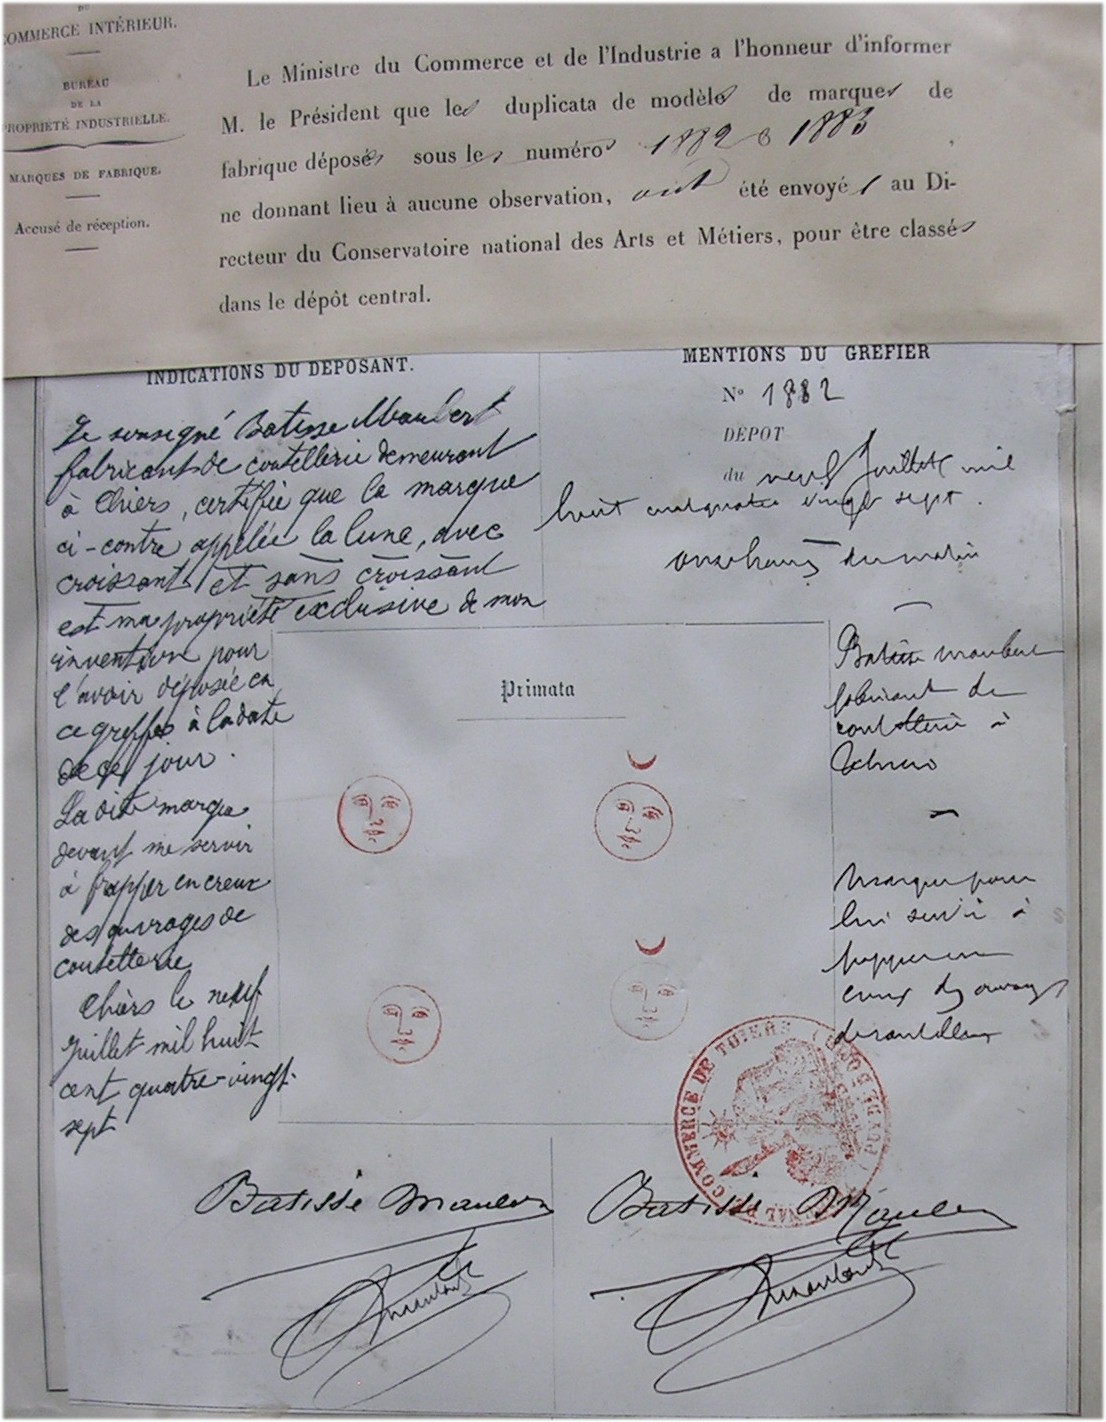 DU
COMMERCE INTÉRIEUR.
BUREAU
DE LA
PROPRIÉTÉ INDUSTRIELLE.
MARQUES DE FABRIQUE.
Accusé de réception.
Le Ministre du Commerce et de l'Industrie a l'honneur d'informer
M. le Président que les duplicata de modèles de marques de
fabrique déposés sous les numéros 1882 & 1883
ne donnant lieu à aucune observation, ont été envoyés au Di-
recteur du Conservatoire national des Arts et Métiers, pour être classés
dans le dépôt central.
INDICATIONS DU DEPOSANT.
Je sousigné Batisse Maubert
fabricant de coutellerie demeurant
à Thiers, certifie que la marque
ci-contre appelée la lune, avec
croissant et sans croissant
est ma propriété exclusive de mon
invention pour
l'avoir déposée en
ce greffe à la date
de ce jour.
La dite marque
devant me servir
à frapper en creux
des ouvrages de
coutellerie
Thiers le neuf
Juillet mil huit
cent quatre-vingt-
sept
MENTIONS DU GREFIER
N° 1882
DÉPOT
du neuf Juillet mil
huit cent quatre vingt sept.
onze heures du matin
Batisse Maubert
fabricant de
coutellerie à
Thiers
Marque pour
lui servir à
frapper en
creux des ouvrages
de coutellerie
Primata
COMMERCE DE THIERS (PUY-DE-DOME)
Batisse Mauber
Batisse Mauber